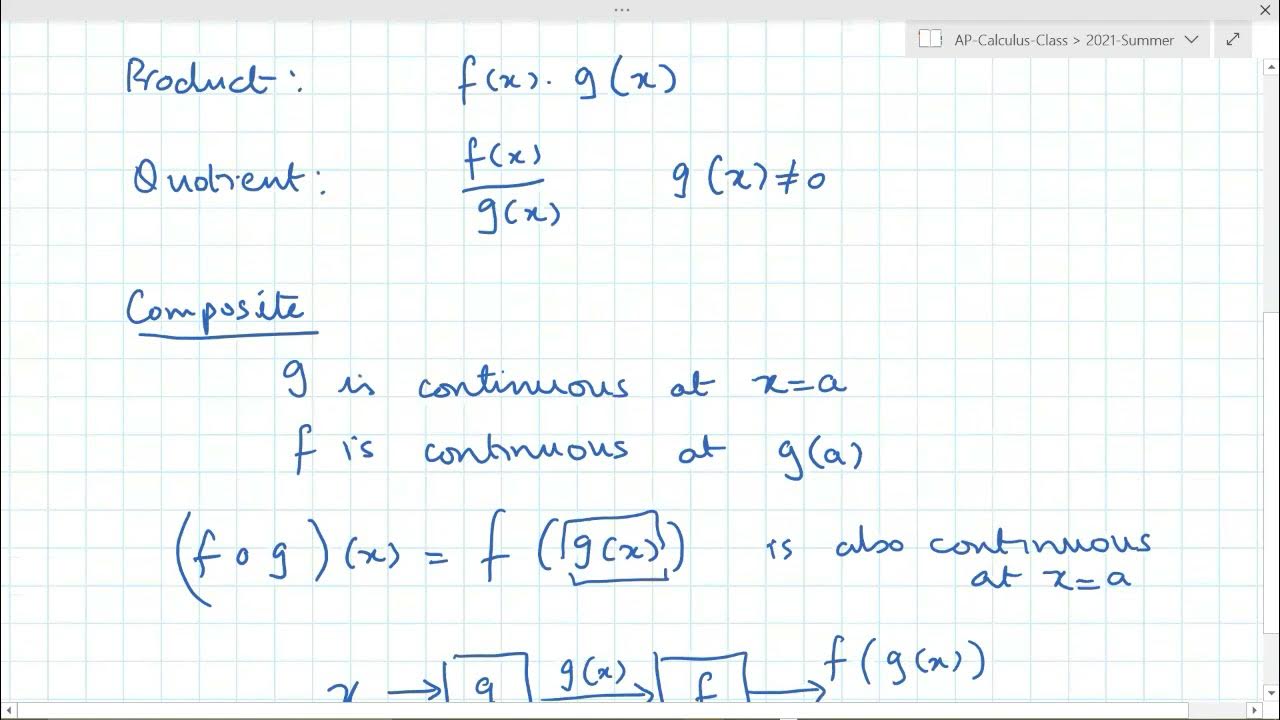 ...
AP-Calculus-Class > 2021-Summer
Product: f(x). g(x)
Quotient: f(x)/g(x) g(x)≠0
Composite
g is continuous at x=a
f is continuous at g(a)
(f o g)(x) = f(g(x)) is also continuous
at x=a
x → g g(x) → f → f(g(x))